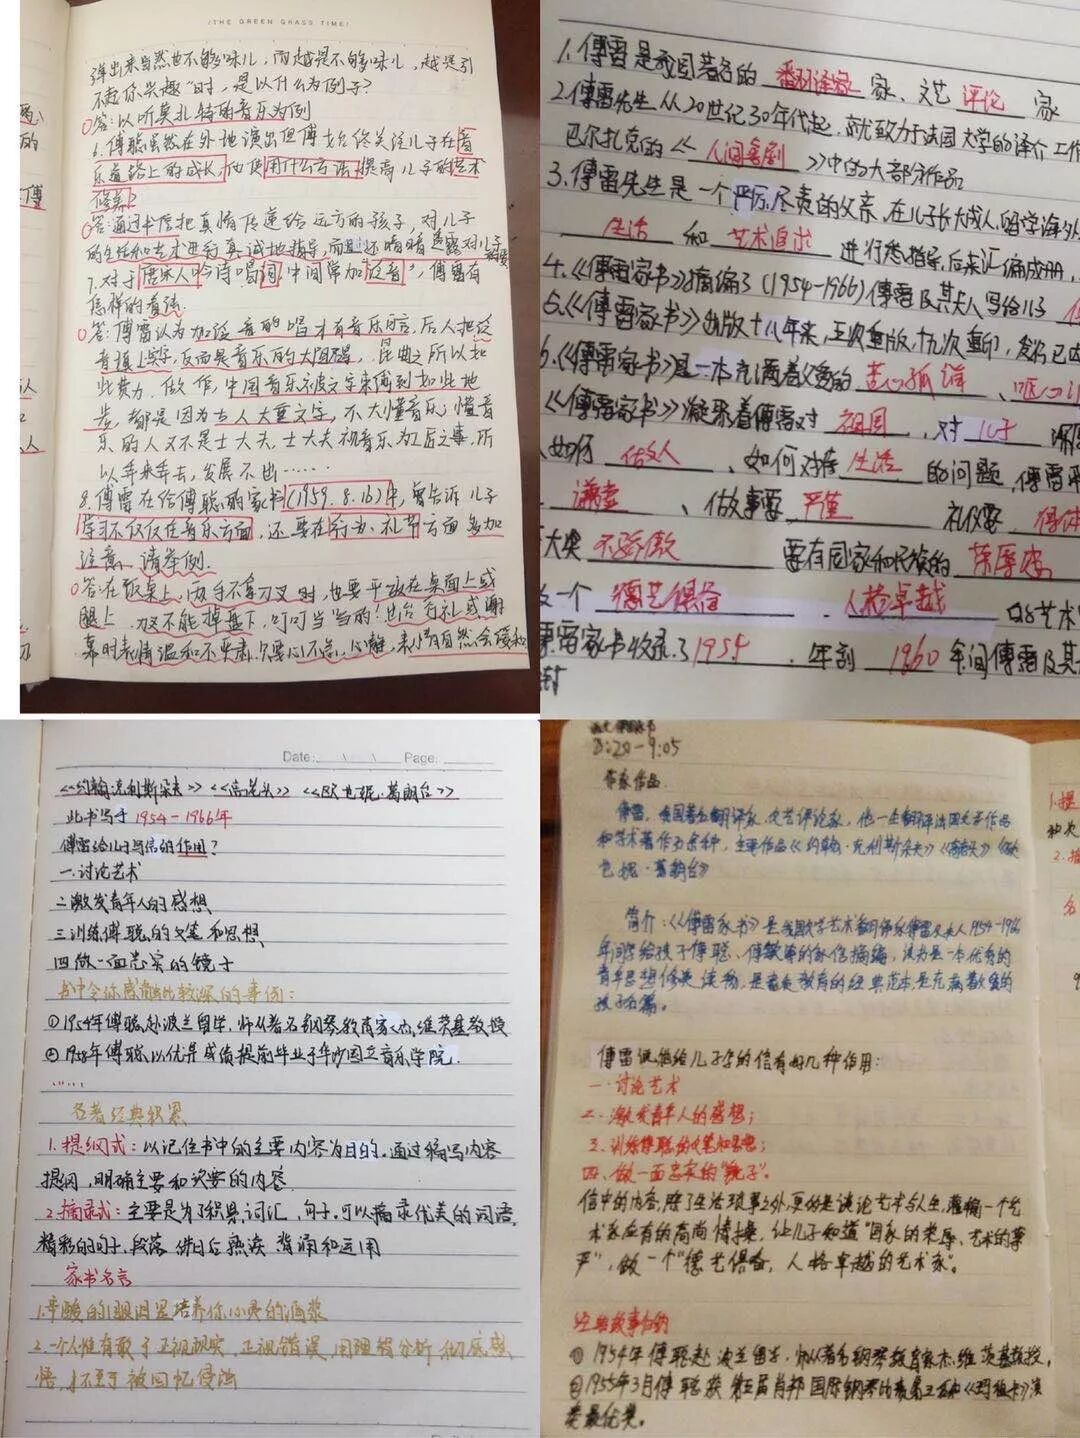 /THE GREEN GRASS TIME/
弹出来当然也不够味儿，而越是不够味儿，越是引
不起你兴趣"时，是以什么为例子？
答：以听莫扎特的音乐为例
6.傅聪虽然在外地演出但傅始终关注儿子在音
乐道路上的成长，他使用什么方法提高儿子的艺术
修养？
答：通过书信把真情传递给远方的孩子，对儿子
的生活和艺术进行真诚地指导，而且还暗暗透露对儿子的爱
7.对于"唐宋人吟诗唱词中间常加泛音"，傅雷有
怎样的看法.
答：傅雷认为加泛音的唱才有音乐可言，后人把泛
音填上实字，反而是音乐的大阻碍，昆曲之所以如
此费力、做作，中国音乐不被文字束缚到如此地
步，都是因为古人太重文字，不大懂音乐；懂音
乐的人又不是士大夫，士大夫视音乐为工匠之事，所
以弄来弄去，发展不出……
8.傅雷在给傅聪的家书(1959.8.16)中，曾告诉儿子
学习不仅仅在音乐方面，还要在行为、礼节方面多加
注意、请举例.
答：在饭桌上，两手不拿刀叉时，也要平放在桌面上或
腿上，刀叉不能掉盘下，叮叮当当的！出台行礼或谢
幕时表情温和不严肃，只要心不急，心静，
1.傅雷是我国著名的 翻译家 家、文艺 评论 家
2.傅雷先生从20世纪30年代起，就致力于法国文学的译介工作
巴尔扎克的《 人间喜剧 》中的大部分作品
3.傅雷先生是一个严厉、尽责的父亲，在儿子长大成人、留学海外
生活 和 艺术追求 进行悉指导，后来汇编成册，
4.《傅雷家书》摘编了(1954-1966)傅雷及其夫人写给儿子
5.《傅雷家书》出版十八年来，五次重版，十九次重印，发行已
6.《傅雷家书》是一本充满着父爱的 苦心孤诣 、呕心
《傅雷家书》凝聚着傅雷对 祖国 ，对 儿子 深厚
如何 做人 、如何对待 生活 的问题，傅雷
谦虚 、做事要 严谨 礼仪要 得体
大奖 不骄傲 要有国家和民族的 荣辱感
一个 德艺俱备 、人格卓越 的艺术
傅雷家书收录了1954 年到 1960 年间傅雷及其
封
Date: \ \ Page:
《约翰·克利斯朵夫》《高老头》《欧也妮·葛朗台》
此书写于 1954-1966年
傅雷给儿子写信的作用？
一.讨论艺术
二激发青年人的感想
三训练傅聪的文笔和思想
四做一面忠实的镜子
书中令你感触比较深的事例：
①1954年傅聪赴波兰留学，师从著名钢琴教育家杰维茨基教授
②1958年傅聪以优异成绩提前毕业于华沙国立音乐学院.
……
名著经典积累
1.提纲式：以记住书中的主要内容为目的，通过编写内容
提纲，明确主要和次要的内容
2.摘录式：主要是为了积累词汇、句子，可以摘录优美的词语，
精彩的句子、段落 供日后熟读、背诵和运用
家书名言
1.辛酸的眼泪是培养你心灵的酒浆
2.一个人惟有敢于正视现实，正视错误，用理智分析，彻底感
悟，才不至于被回忆侵蚀
8:20-9:05
作家作品
傅雷，我国著名翻译家，文艺评论家，他一生翻译法国文学作品
和学术著作30余种，主要作品《约翰·克利斯朵夫》《高老头》《欧
也妮·葛朗台》
简介：《傅雷家书》是我国文学艺术翻译家傅雷及夫人1954-1966
年间写给孩子傅聪、傅敏等的家信摘编，该书是一本优秀的
青年思想修养读物，是素质教育的经典范本，是充满着父爱的
教子名篇。
傅雷说他给儿子写的信有好几种作用：
一.讨论艺术
二、激发青年人的感想；
三.训练傅聪的文笔和思想；
四、做一面忠实的"镜子"。
信中的内容，除了生活琐事之外，更多的是谈论艺术与人生，灌输一个艺
术家应有的高尚情操，让儿子知道"国家的荣辱、艺术的尊
严"，做一个"德艺俱备，人格卓越的艺术家"。
经典故事
①1954年傅聪赴波兰留学，师从著名钢琴教育家杰维茨基教授，
②1955年3月傅聪获第五届肖邦国际钢琴比赛第三名和《玛祖卡》演
奏最优奖。